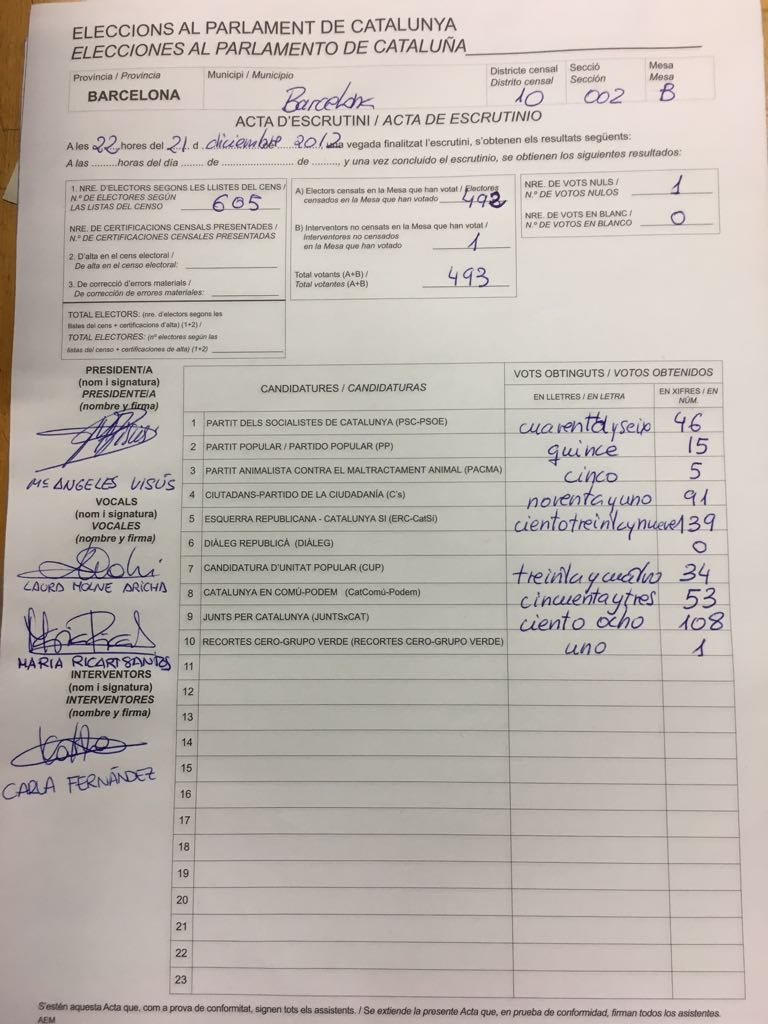 ELECCIONS AL PARLAMENT DE CATALUNYA
ELECCIONES AL PARLAMENTO DE CATALUÑA
Província / Provincia
BARCELONA
Municipi / Municipio
Barcelona
Districte censal
Distrito censal
10
Secció
Sección
002
Mesa
Mesa
B
ACTA D'ESCRUTINI / ACTA DE ESCRUTINIO
A les 22 hores del 21 d diciembre 2017 una vegada finalitzat l'escrutini, s'obtenen els resultats següents:
A las .........horas del día ....... de ........................ de ........, y una vez concluido el escrutinio, se obtienen los siguientes resultados:
1. NRE. D'ELECTORS SEGONS LES LLISTES DEL CENS /
N.º DE ELECTORES SEGÚN
LAS LISTAS DEL CENSO 605
NRE. DE CERTIFICACIONS CENSALS PRESENTADES /
N.º DE CERTIFICACIONES CENSALES PRESENTADAS
2. D'alta en el cens electoral /
De alta en el censo electoral:
3. De correcció d'errors materials /
De corrección de errores materiales:
TOTAL ELECTORS: (nre. d'electors segons les
llistes del cens + certificacions d'alta) (1+2) /
TOTAL ELECTORES: (nº electores según las
listas del censo + certificaciones de alta) (1+2)
A) Electors censats en la Mesa que han votat / Electores
censados en la Mesa que han votado 492
B) Interventors no censats en la Mesa que han votat /
Interventores no censados
en la Mesa que han votado 1
Total votants (A+B) /
Total votantes (A+B) 493
NRE. DE VOTS NULS /
N.º DE VOTOS NULOS 1
NRE. DE VOTS EN BLANC /
N.º DE VOTOS EN BLANCO 0
PRESIDENT/A
(nom i signatura)
PRESIDENTE/A
(nombre y firma)
Mª ANGELES VISÚS
VOCALS
(nom i signatura)
VOCALES
(nombre y firma)
LAURA MOLNE ARICHA
MARIA RICART SANTOS
INTERVENTORS
(nom i signatura)
INTERVENTORES
(nombre y firma)
CARLA FERNÁNDEZ
CANDIDATURES / CANDIDATURAS
VOTS OBTINGUTS / VOTOS OBTENIDOS
EN LLETRES / EN LETRA
EN XIFRES / EN
NÚM.
1 PARTIT DELS SOCIALISTES DE CATALUNYA (PSC-PSOE) cuarenta y seis 46
2 PARTIT POPULAR / PARTIDO POPULAR (PP) quince 15
3 PARTIT ANIMALISTA CONTRA EL MALTRACTAMENT ANIMAL (PACMA) cinco 5
4 CIUTADANS-PARTIDO DE LA CIUDADANÍA (C's) noventa y uno 91
5 ESQUERRA REPUBLICANA - CATALUNYA SI (ERC-CatSí) ciento treinta y nueve 139
6 DIÀLEG REPUBLICÀ (DIÀLEG) 0
7 CANDIDATURA D'UNITAT POPULAR (CUP) treinta y cuatro 34
8 CATALUNYA EN COMÚ-PODEM (CatComú-Podem) cincuenta y tres 53
9 JUNTS PER CATALUNYA (JUNTSxCAT) ciento ocho 108
10 RECORTES CERO-GRUPO VERDE (RECORTES CERO-GRUPO VERDE) uno 1
11
12
13
14
15
16
17
18
19
20
21
22
23
S'estén aquesta Acta que, com a prova de conformitat, signen tots els assistents. / Se extiende la presente Acta que, en prueba de conformidad, firman todos los asistentes.
AEM